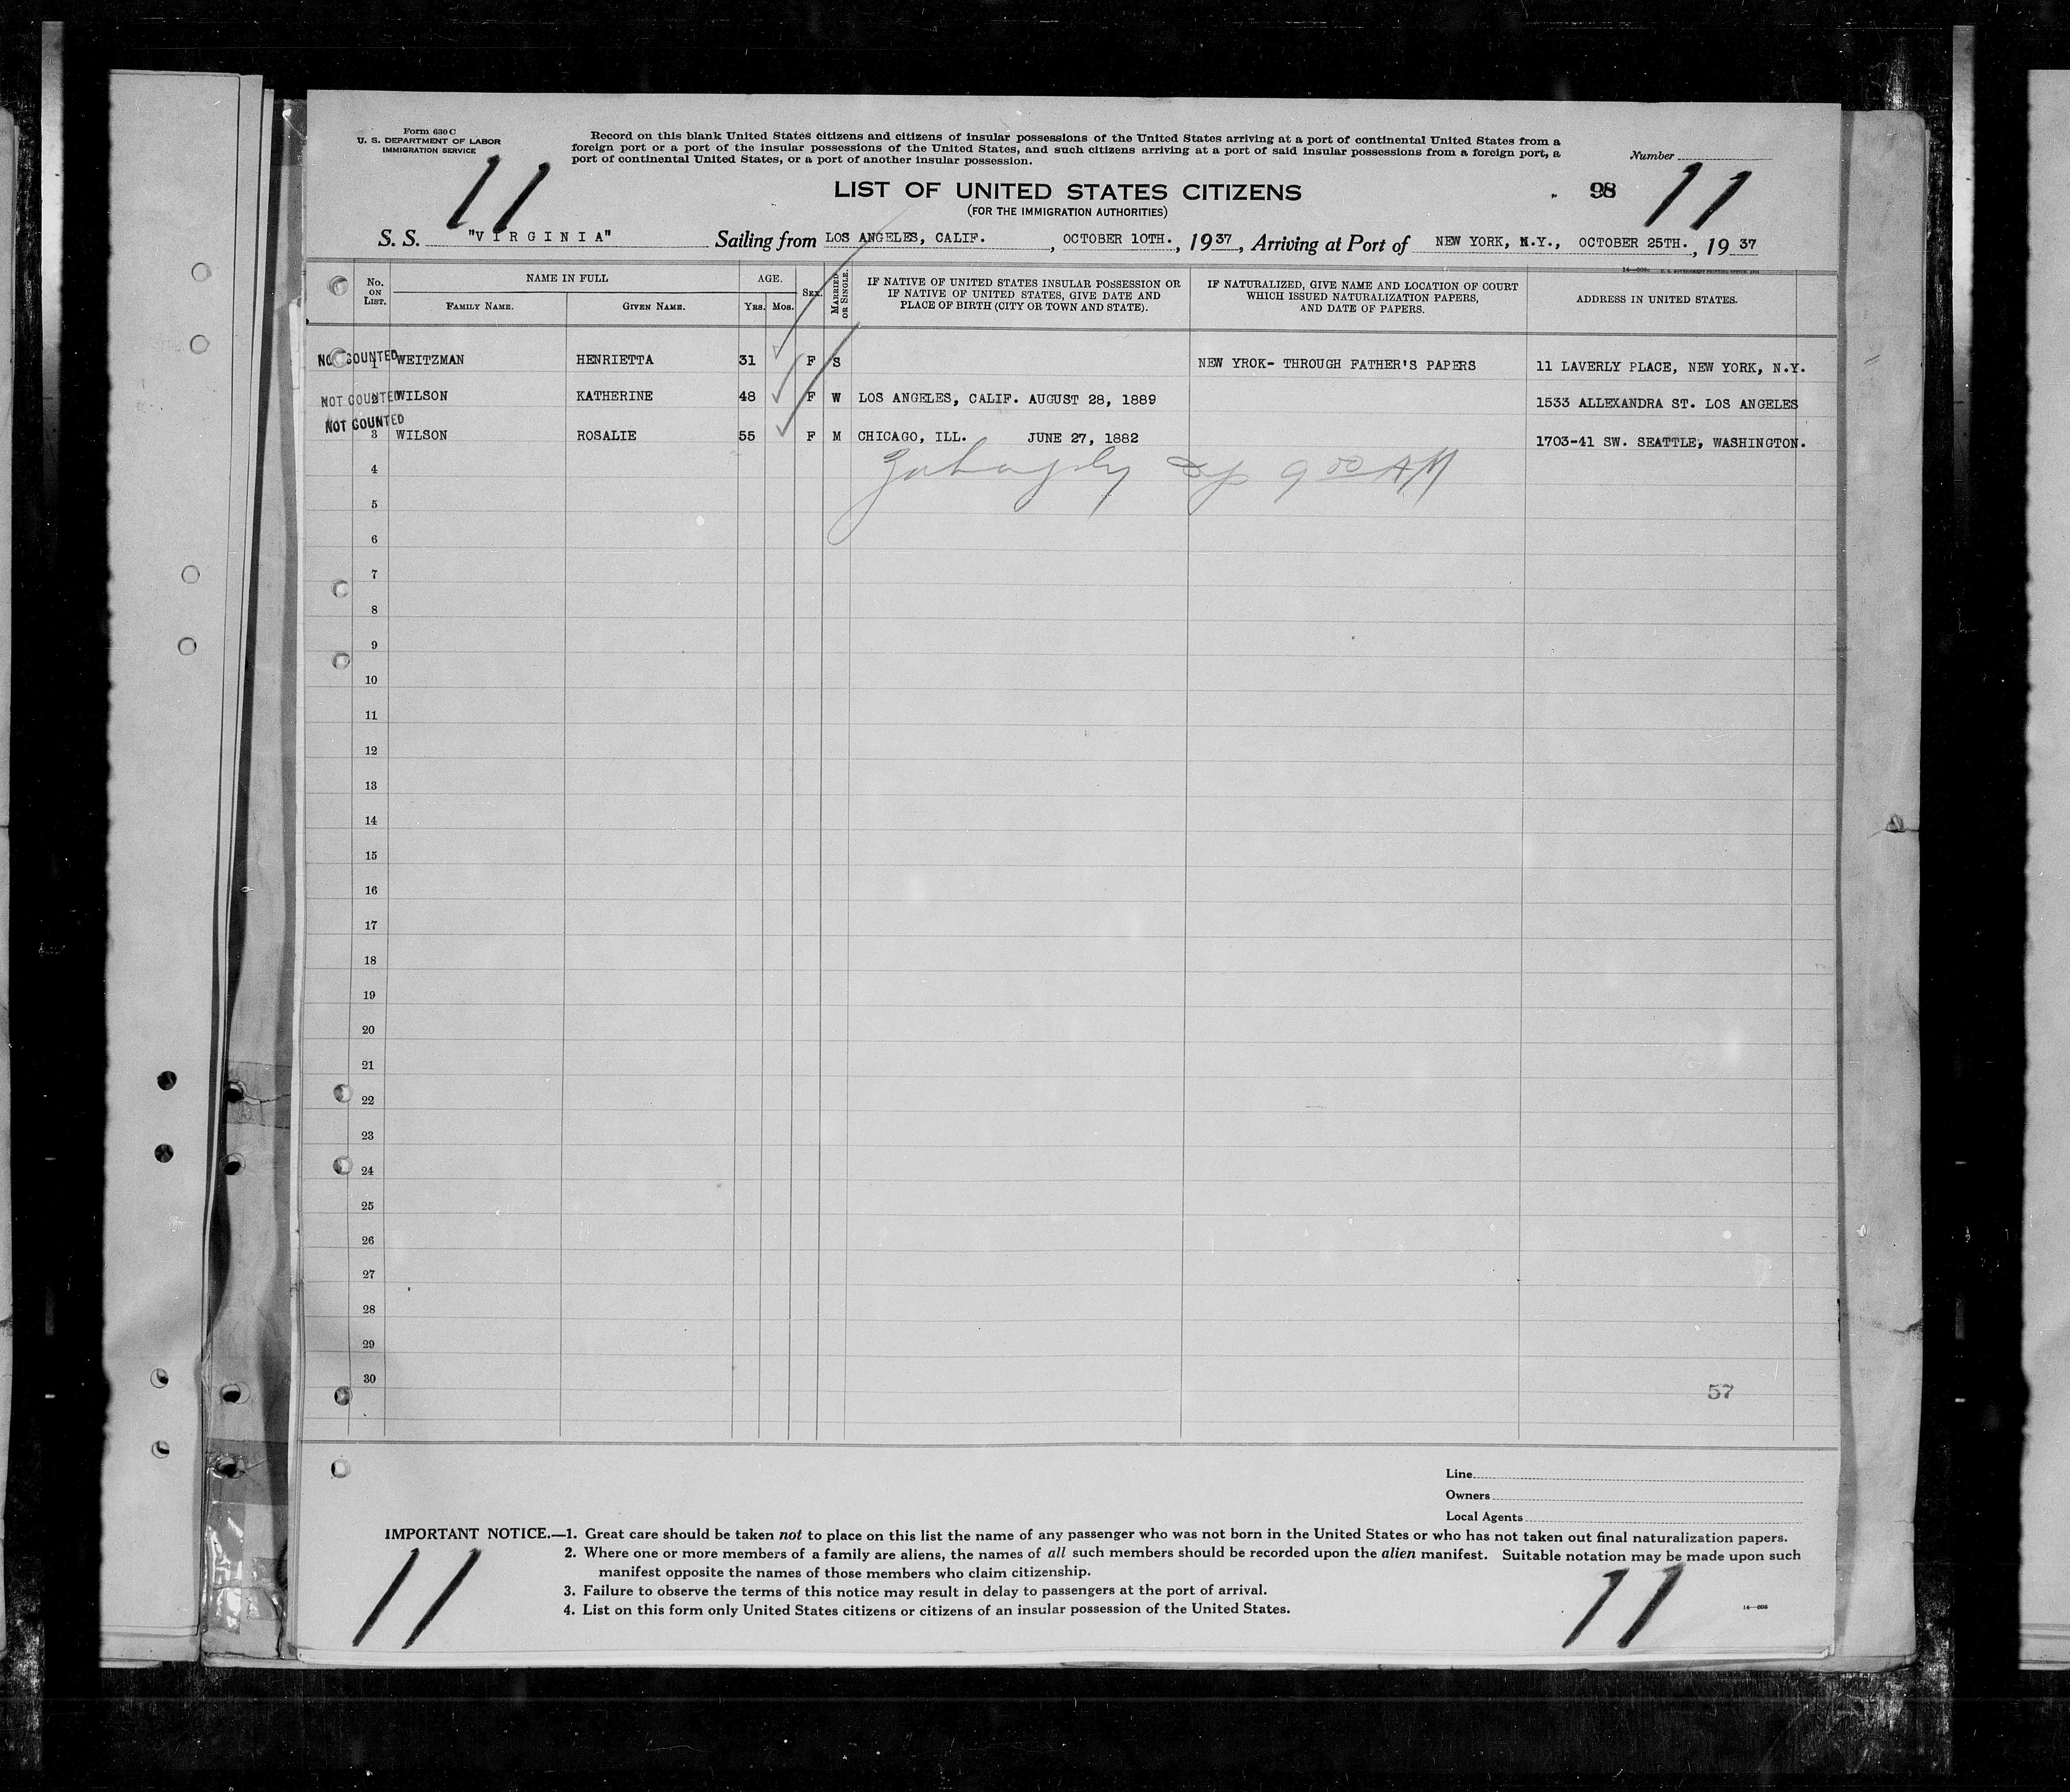 Form 630 C
U. S. DEPARTMENT OF LABOR
IMMIGRATION SERVICE
Record on this blank United States citizens and citizens of insular possessions of the United States arriving at a port of continental United States from a
foreign port or a port of the insular possessions of the United States, and such citizens arriving at a port of said insular possessions from a foreign port, a
port of continental United States, or a port of another insular possession.
Number
11
LIST OF UNITED STATES CITIZENS
98
11
(FOR THE IMMIGRATION AUTHORITIES)
S. S. "VIRGINIA" Sailing from LOS ANGELES, CALIF. , OCTOBER 10TH. , 1937 , Arriving at Port of NEW YORK, N.Y., OCTOBER 25TH. , 1937
No. ON LIST. NAME IN FULL AGE. SEX. MARRIED OR SINGLE. IF NATIVE OF UNITED STATES INSULAR POSSESSION OR IF NATIVE OF UNITED STATES, GIVE DATE AND PLACE OF BIRTH (CITY OR TOWN AND STATE). IF NATURALIZED, GIVE NAME AND LOCATION OF COURT WHICH ISSUED NATURALIZATION PAPERS, AND DATE OF PAPERS. ADDRESS IN UNITED STATES.
FAMILY NAME. GIVEN NAME. YRS. MOS.
NOT COUNTED 1 WEITZMAN HENRIETTA 31 F S NEW YROK- THROUGH FATHER'S PAPERS 11 LAVERLY PLACE, NEW YORK, N.Y.
NOT COUNTED WILSON KATHERINE 48 F W LOS ANGELES, CALIF. AUGUST 28, 1889 1533 ALLEXANDRA ST. LOS ANGELES
NOT COUNTED 3 WILSON ROSALIE 55 F M CHICAGO, ILL. JUNE 27, 1882 1703-41 SW. SEATTLE, WASHINGTON.
4
9 00 AM
5
6
7
8
9
10
11
12
13
14
15
16
17
18
19
20
21
22
23
24
25
26
27
28
29
30
57
Line
Owners
Local Agents
IMPORTANT NOTICE.—1. Great care should be taken not to place on this list the name of any passenger who was not born in the United States or who has not taken out final naturalization papers.
2. Where one or more members of a family are aliens, the names of all such members should be recorded upon the alien manifest. Suitable notation may be made upon such
manifest opposite the names of those members who claim citizenship.
3. Failure to observe the terms of this notice may result in delay to passengers at the port of arrival.
4. List on this form only United States citizens or citizens of an insular possession of the United States.
11
11